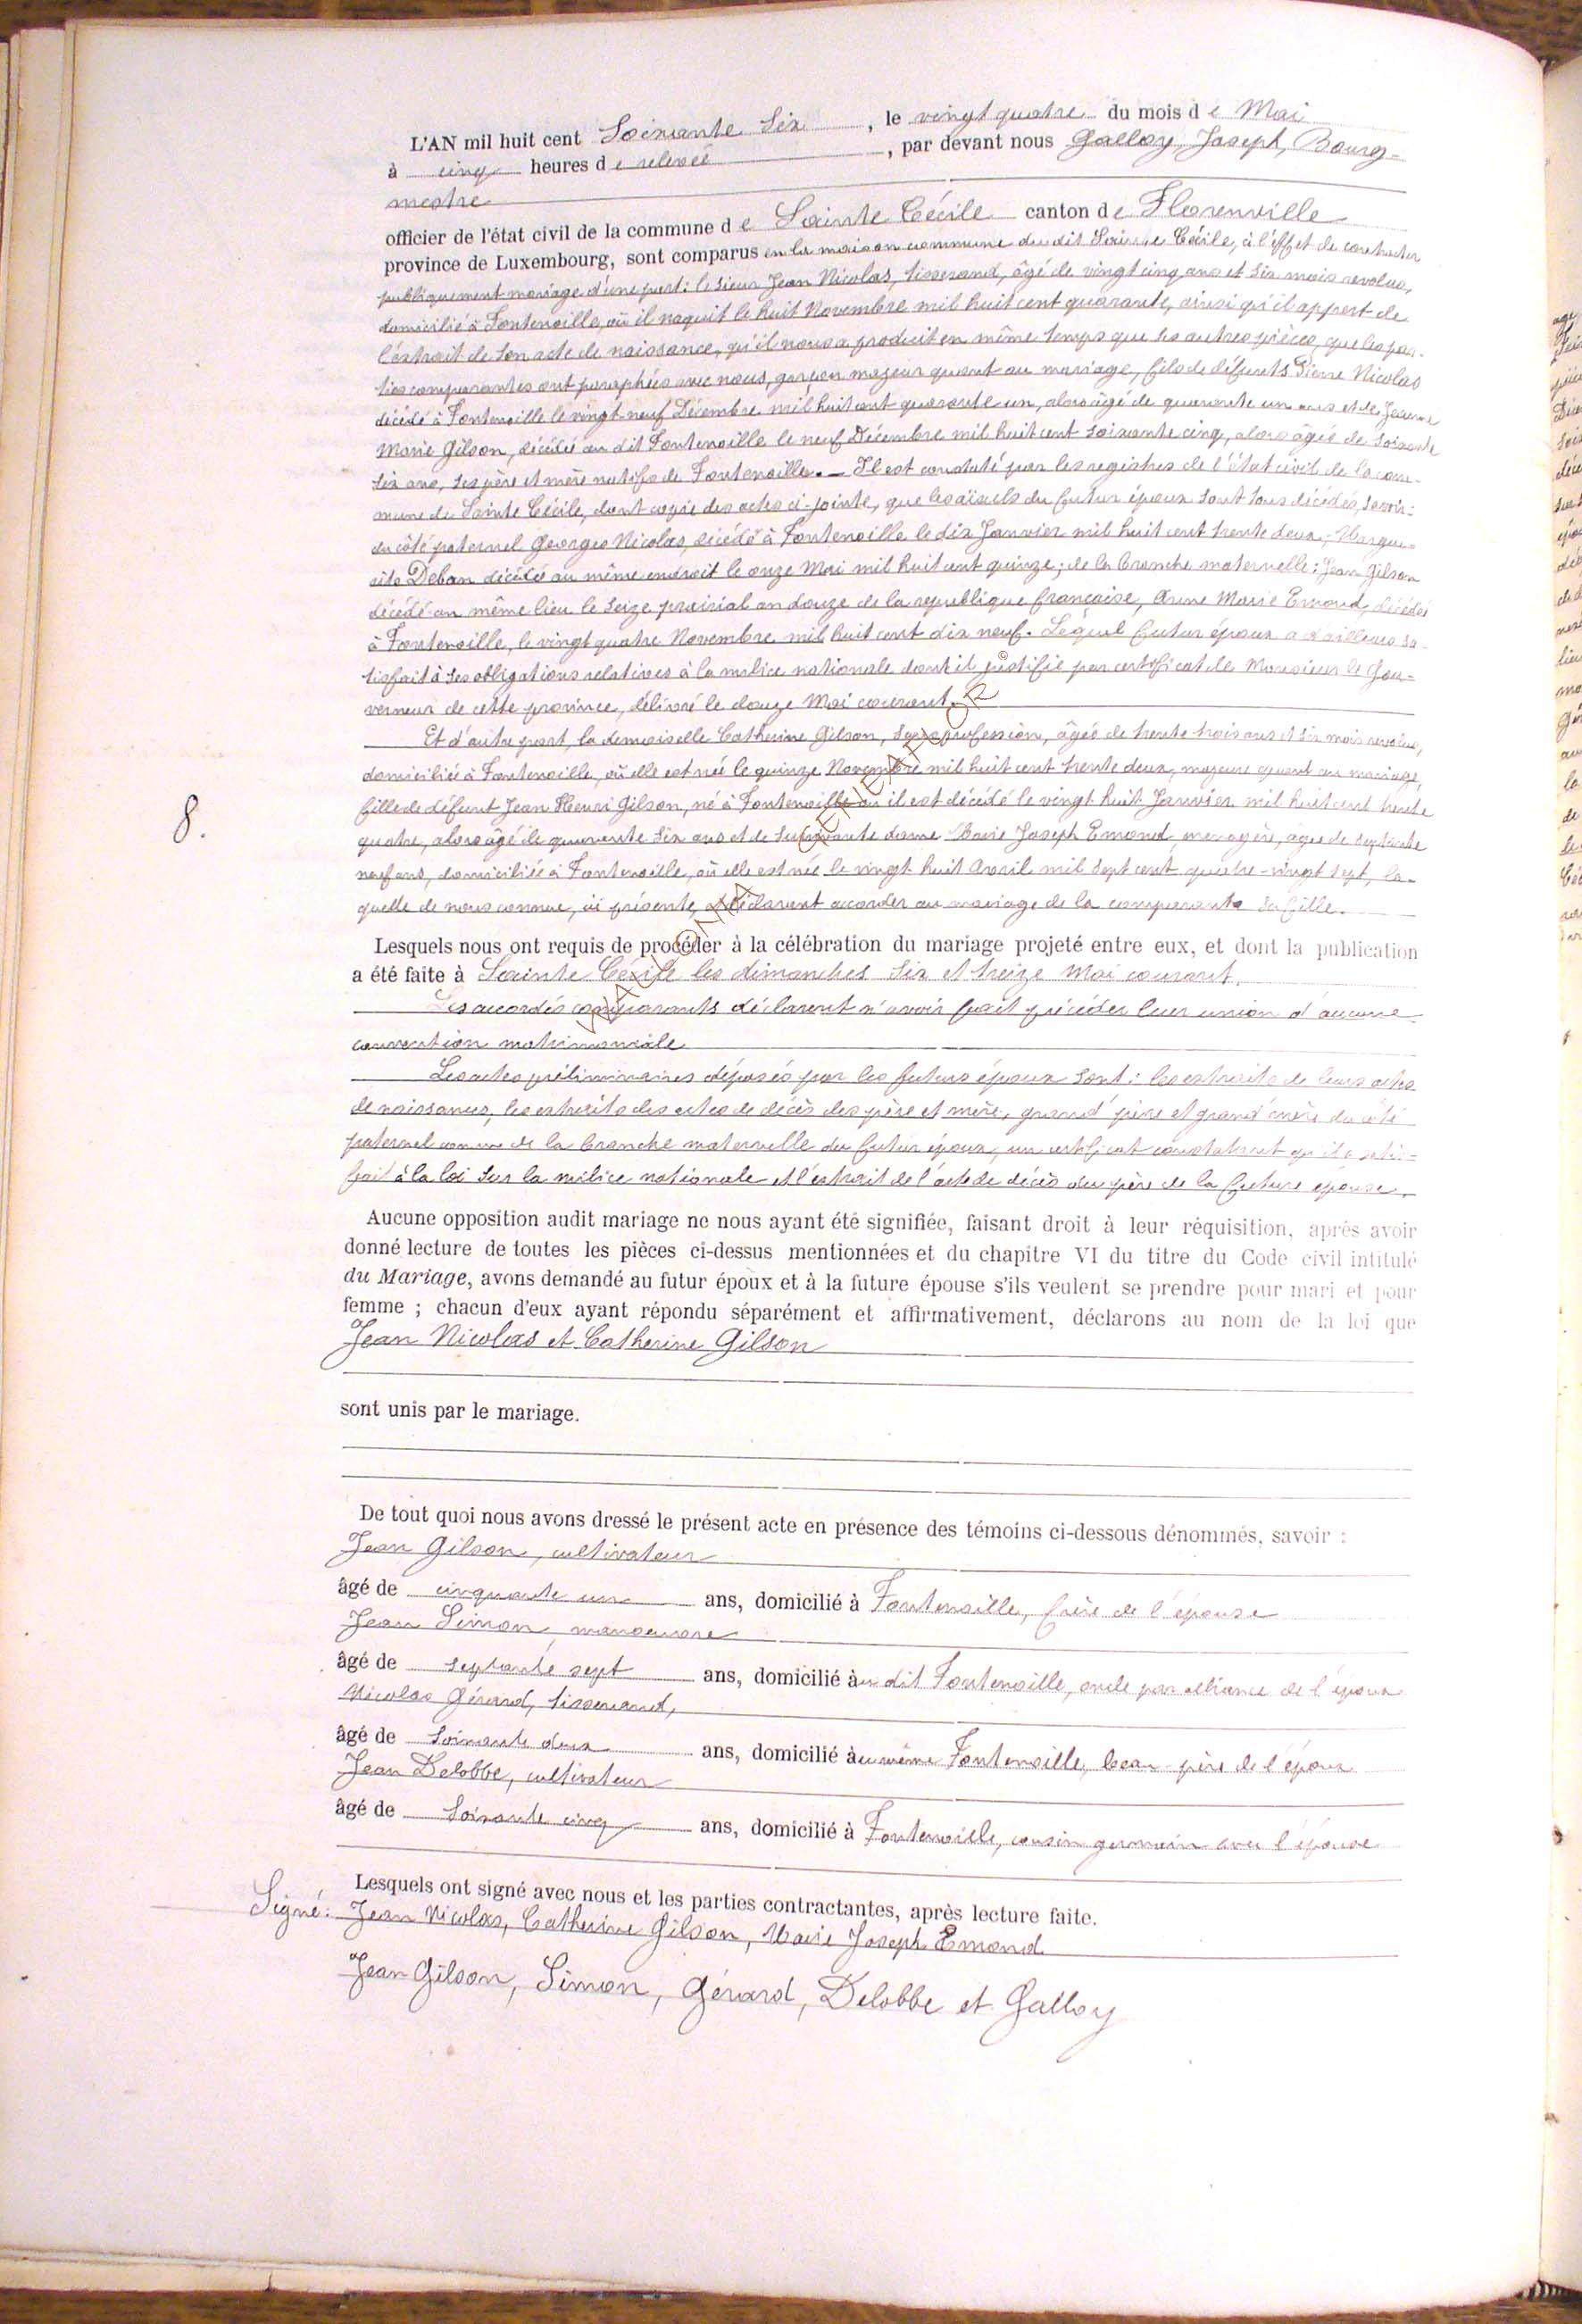 L'AN mil huit cent Soixante Six, le vingt quatre du mois de Mai
à cinq heures de relevée, par devant nous Galloy, Joseph, Bourg-
mestre
officier de l'état civil de la commune de Sainte Cécile canton de Florenville
province de Luxembourg, sont comparus en la maison commune du dit Sainte Cécile, à l'effet de contracter
publiquement mariage d'une part: le sieur Jean Nicolas, tisserand, âgé de vingt cinq ans et six mois revolus,
domicilié à Fontenoille, où il naquit le huit Novembre mil huit cent quarante, ainsi qu'il appert de
l'extrait de son acte de naissance, qu'il nous a produit en même temps que les autres pièces, que les par-
ties comparantes ont paraphées avec nous, garçon majeur quant au mariage, fils de défunts Pierre Nicolas
décédé à Fontenoille le vingt neuf Décembre mil huit cent quarante un, alors âgé de quarante un ans et de Jeanne
Marie Gilson, décédée au dit Fontenoille le neuf Décembre mil huit cent soixante cinq, alors âgée de soixante
six ans, ses père et mère natifs de Fontenoille. — Il est constaté par les registres de l'état civil de la com-
mune de Sainte Cécile, dont copie des actes ci-jointe, que les aïeuls du futur époux sont tous décédés, savoir:
du côté paternel Georges Nicolas, décédé à Fontenoille le dix Janvier mil huit cent trente deux, Margue-
rite Déban décédée au même endroit le onze Mai mil huit cent quinze; de la branche maternelle: Jean Gilson
décédé au même lieu le seize prairial an douze de la republique française, Anne Marie Emond, décédée
à Fontenoille, le vingt quatre Novembre mil huit cent dix neuf. Lequel futur époux a d'ailleurs sa-
tisfait à ses obligations relatives à la milice nationale dont il justifie par certificat de Monsieur le Gou-
verneur de cette province, délivré le douze Mai courant.
Et d'autre part, la demoiselle Catherine Gilson, sans profession, âgée de trente trois ans et six mois revolus,
domiciliée à Fontenoille, où elle est née le quinze Novembre mil huit cent trente deux, majeure quant au mariage,
fille de défunt Jean Henri Gilson, né à Fontenoille où il est décédé le vingt huit Janvier mil huit cent trente
quatre, alors âgé de quarante six ans et de survivante dame Marie Joseph Emond, menagère, âgée de septante
neuf ans, domiciliée à Fontenoille, où elle est née le vingt huit Avril mil sept cent quatre-vingt sept, la-
quelle de nous connue, ici présente, déclarent accorder au mariage de la comparante sa fille.
8.
Lesquels nous ont requis de procéder à la célébration du mariage projeté entre eux, et dont la publication
a été faite à Sainte Cécile les dimanches six et treize Mai courant.
Les accordés comparants déclarent n'avoir fait précéder leur union d'aucune
convention matrimoniale
Les actes préliminaires déposés par les futurs époux sont: les extraits de leurs actes
de naissances, les extraits des actes de décès des père et mère, grand'père et grand'mère du côté
paternel comme de la branche maternelle du futur époux, un certificat constatant qu'il a satis-
fait à la loi sur la milice nationale et l'extrait de l'acte de décès du père de la future épouse.
Aucune opposition audit mariage ne nous ayant été signifiée, faisant droit à leur réquisition, après avoir
donné lecture de toutes les pièces ci-dessus mentionnées et du chapitre VI du titre du Code civil intitulé
du Mariage, avons demandé au futur époux et à la future épouse s'ils veulent se prendre pour mari et pour
femme ; chacun d'eux ayant répondu séparément et affirmativement, déclarons au nom de la loi que
Jean Nicolas et Catherine Gilson
sont unis par le mariage.
De tout quoi nous avons dressé le présent acte en présence des témoins ci-dessous dénommés, savoir :
Jean Gilson, cultivateur
âgé de cinquante un ans, domicilié à Fontenoille, frère de l'épouse
Jean Simon, manoeuvre
âgé de septante sept ans, domicilié au dit Fontenoille, oncle par alliance de l'époux
Nicolas Gérard, tisserand,
âgé de soixante deux ans, domicilié au même Fontenoille, beau-père de l'époux
Jean Delobbe, cultivateur
âgé de Soixante cinq ans, domicilié à Fontenoille, cousin germain avec l'épouse
Lesquels ont signé avec nous et les parties contractantes, après lecture faite.
Signé: Jean Nicolas, Catherine Gilson, Marie Joseph Emond
Jean Gilson, Simon, Gérard, Delobbe et Galloy